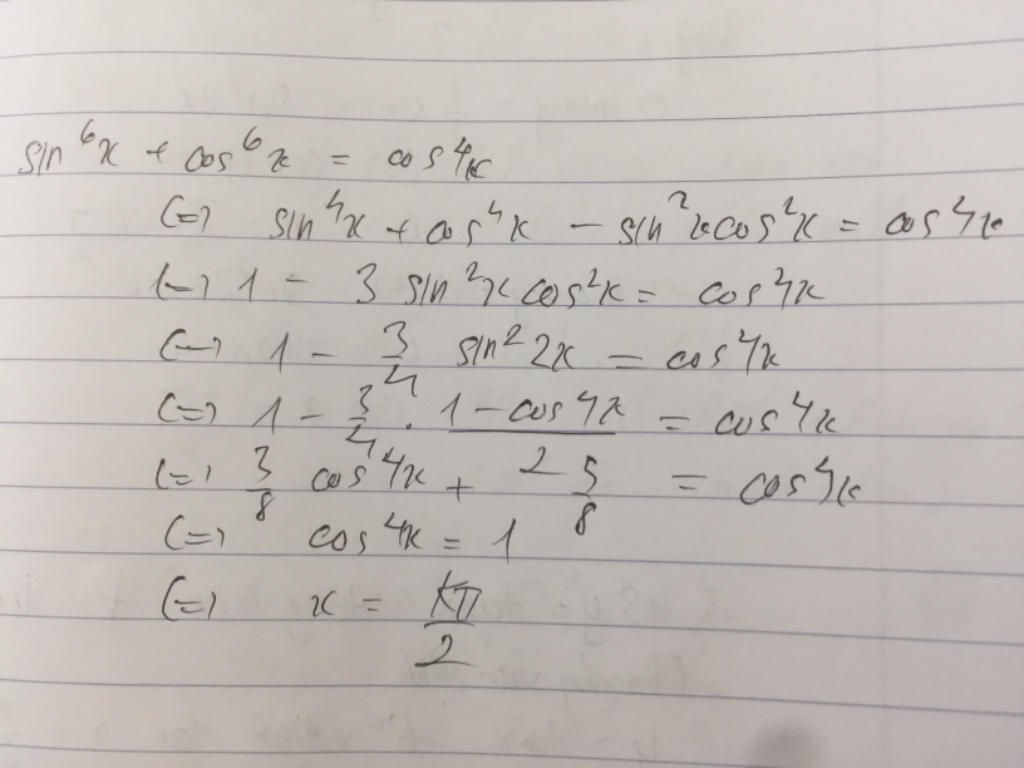 sin⁶x + cos⁶x = cos4x
(=) sin⁴x + cos⁴x - sin²xcos²x = cos4x
(=) 1 - 3 sin²x cos²x = cos4x
(=) 1 - 3/4 sin²2x = cos4x
(=) 1 - 3/4 . (1 - cos4x)/2 = cos4x
(=) 3/8 cos4x + 5/8 = cos4x
(=) cos4x = 1
(=) x = kπ/2